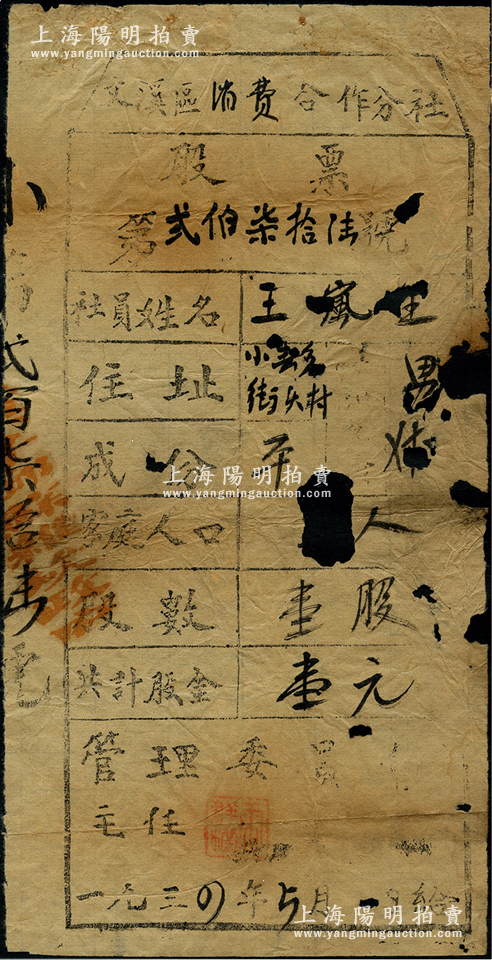 上海陽明拍賣
www.yangmingauction.com
溪區消費合作分社
股票
第弍伯柒拾陆號
社員姓名 王 生
住址 小 街头村 男
成分
上海陽明拍賣
www.yangmingauction.com
家庭人口 人
股數 壹股
共計股金 壹元
管理委員
主任
一九三四年5月 日給
上海陽明拍賣
www.yangmingauction.com
弍百柒拾 号